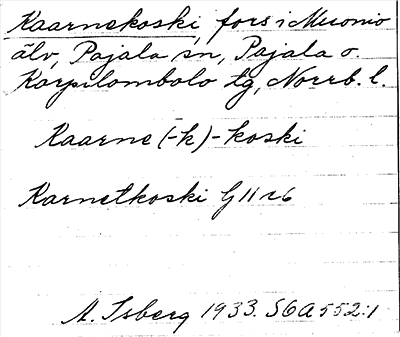 Kaarnekoski, fors i Muonio
älv, Pajala sn, Pajala o.
Korpilombolo tg, Norrb. l.
Kaarne(-k)-koski
Karnetkoski G11r6
A. Isberg 1933. S6A552:1